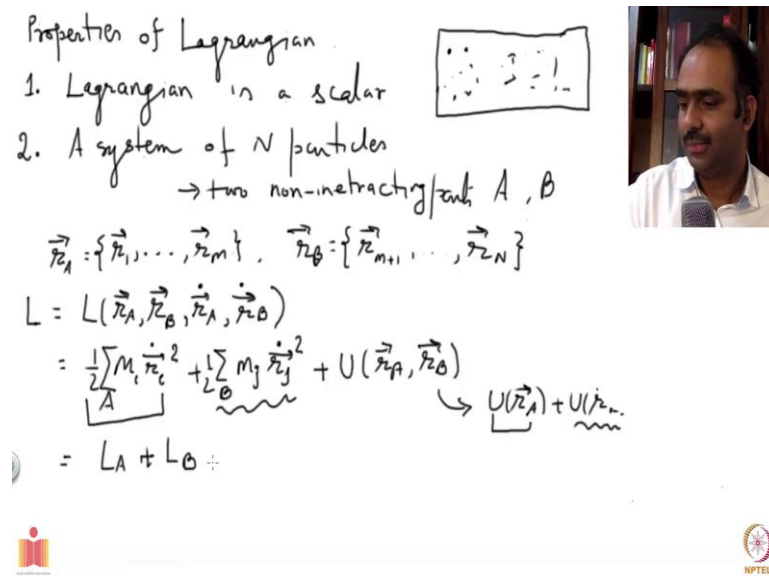 Properties of Lagrangian
1. Lagrangian is a scalar
2. A system of N particles
→ two non-inetracting parts A, B
r⃗_A = {r⃗_1, ..., r⃗_M}. r⃗_B = {r⃗_{m+1}, ..., r⃗_N}
L = L(r⃗_A, r⃗_B, ṙ⃗_A, ṙ⃗_B)
= 1/2 ∑_A m_i ṙ⃗_i² + 1/2 ∑_B m_j ṙ⃗_j² + U(r⃗_A, r⃗_B)
↳ U(r⃗_A) + U(r
= L_A + L_B
NPTEL